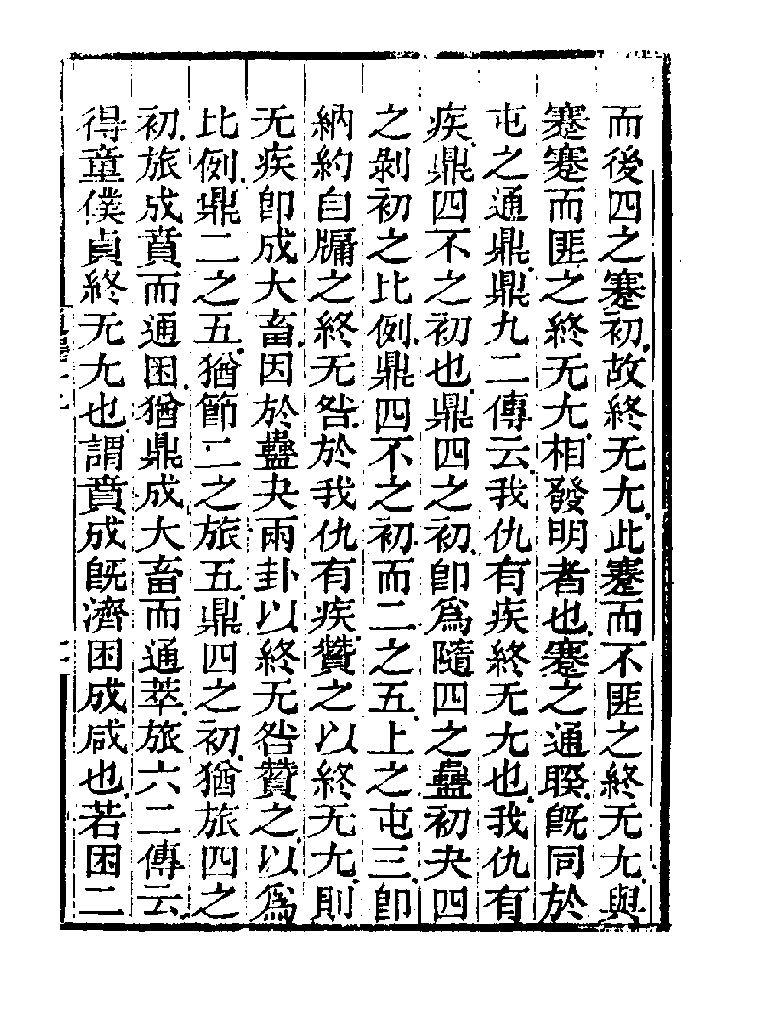 而後四之蹇初故終无尤此蹇而不匪之終无尤與
蹇蹇而匪之終无尤相發明者也蹇之通睽旣同於
屯之通鼎鼎九二傳云我仇有疾終无尤也我仇有
疾鼎四不之初也鼎四之初卽爲隨四之蠱初夬四
之剝初之比例鼎四不之初而二之五上之屯三卽
納約自牖之終无咎於我仇有疾贊之以終无尤則
无疾卽成大畜因於蠱夬兩卦以終无咎贊之以爲
比例鼎二之五猶節二之旅五鼎四之初猶旅四之
初旅成賁而通困猶鼎成大畜而通萃旅六二傳云
得童僕貞終无尤也謂賁成旣濟困成咸也若困二